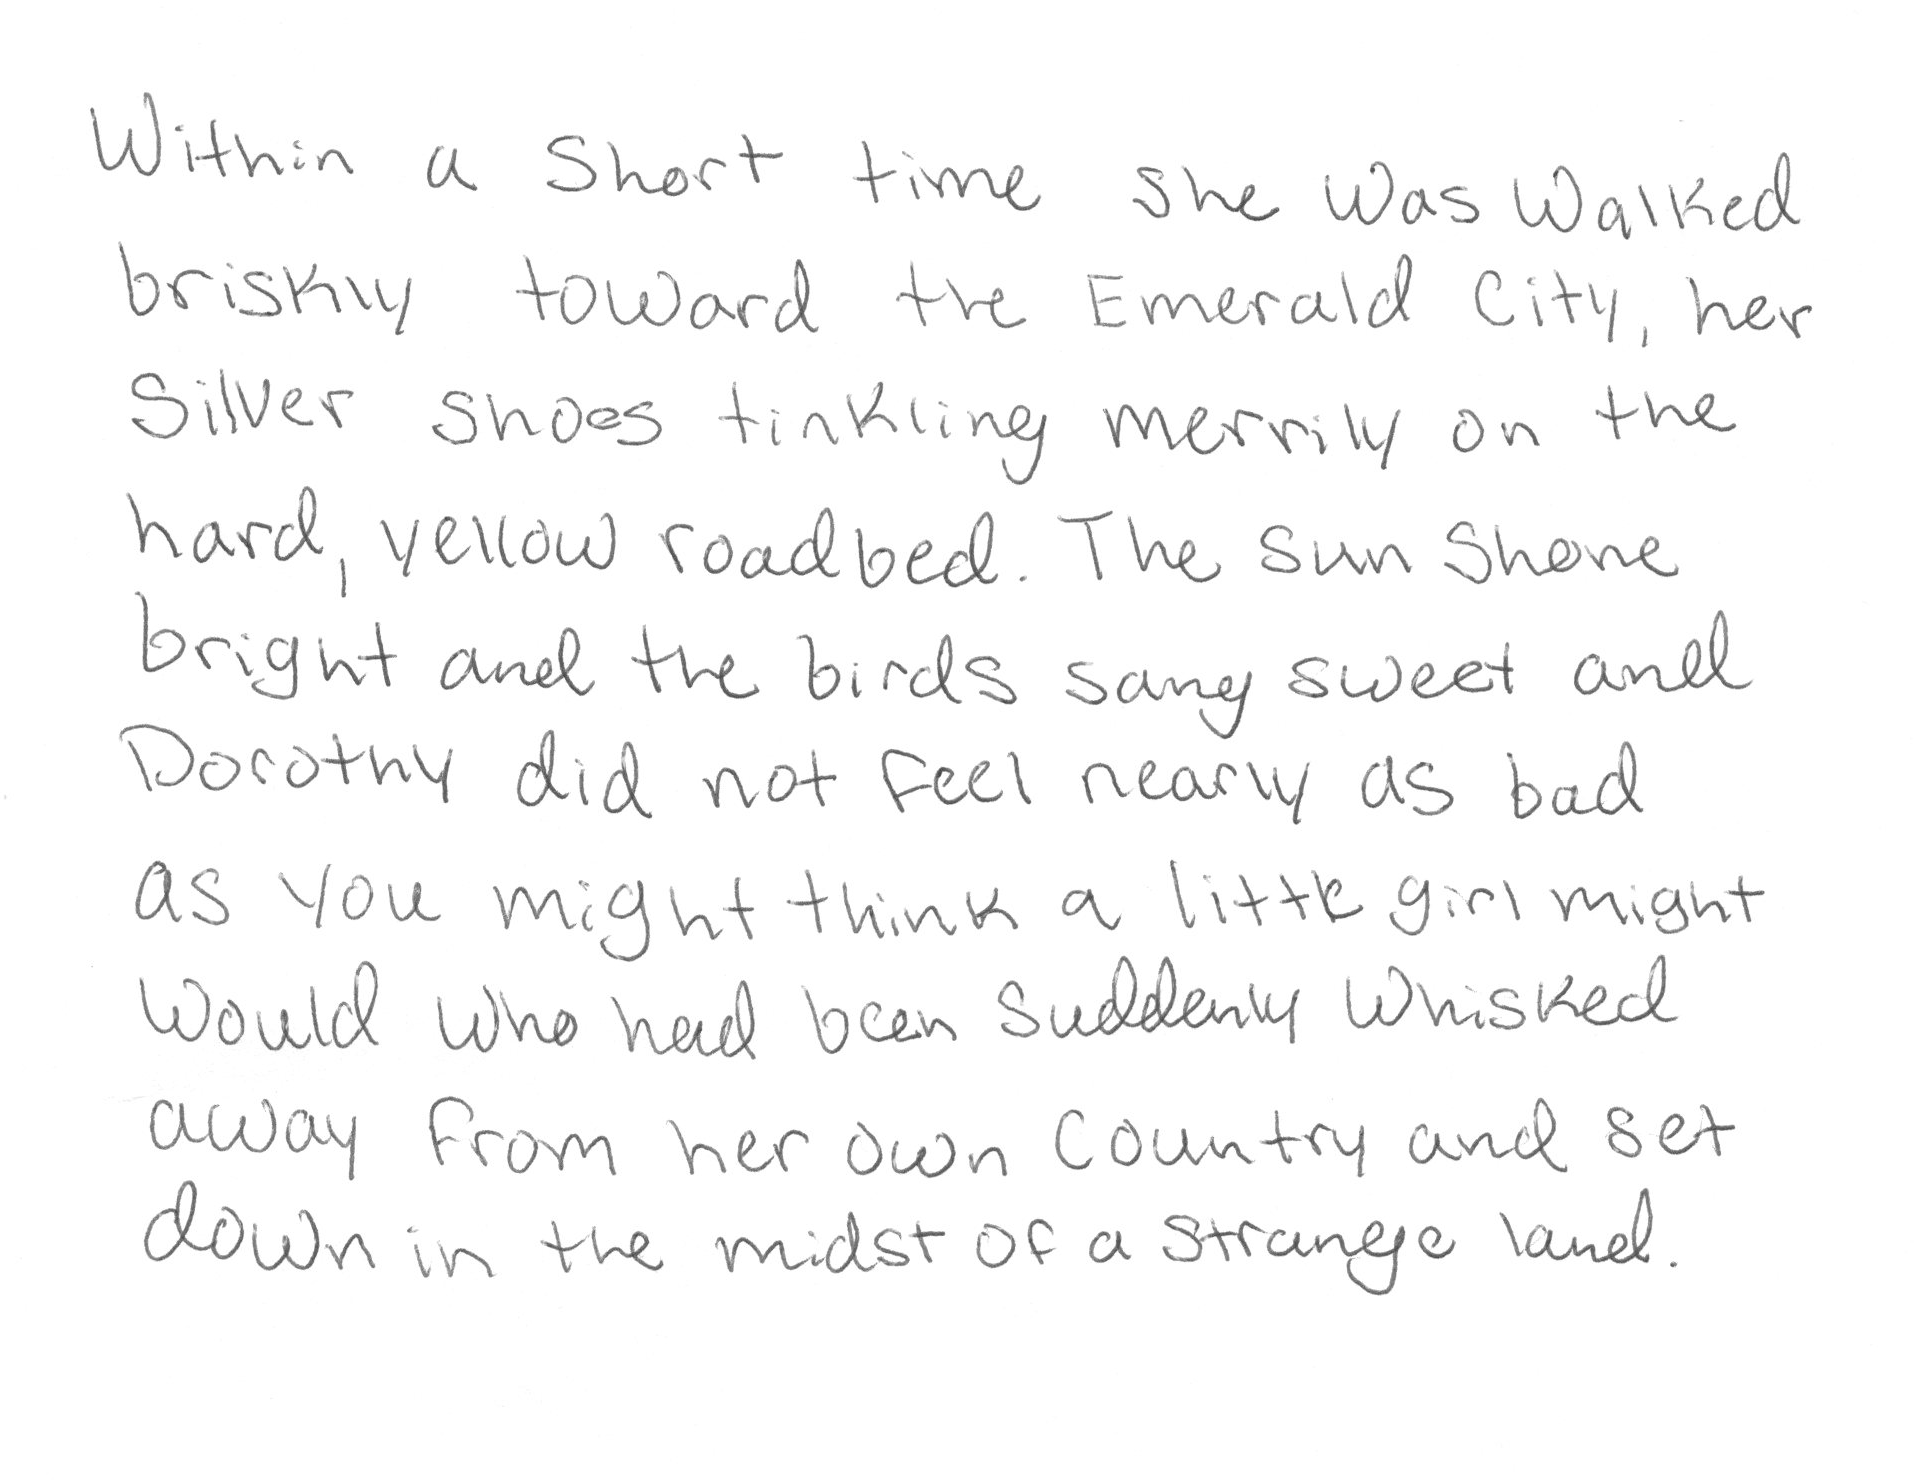 Within a Short time she was walked
briskly toward the Emerald City, her
Silver shoes tinkling merrily on the
hard, yellow roadbed. The sun shone
bright and the birds sang sweet and
Dorothy did not feel nearly as bad
as you might think a little girl might
would who had been suddenly whisked
away from her own country and set
down in the midst of a strange land.